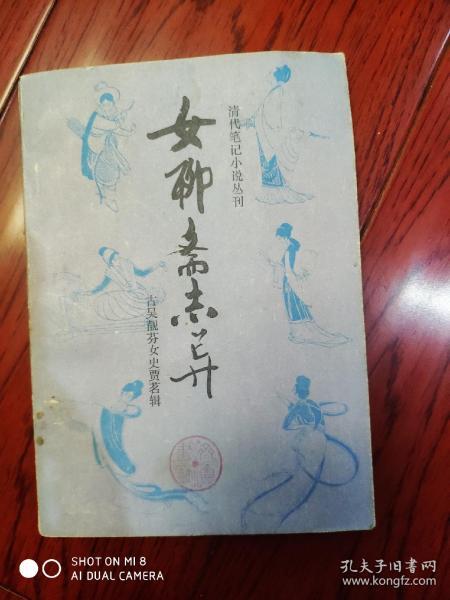 清代笔记小说丛刊
女聊斋志异
古吴靓芬女史贾茗辑
SHOT ON MI 8
AI DUAL CAMERA
孔夫子旧书网
www.kongfz.com